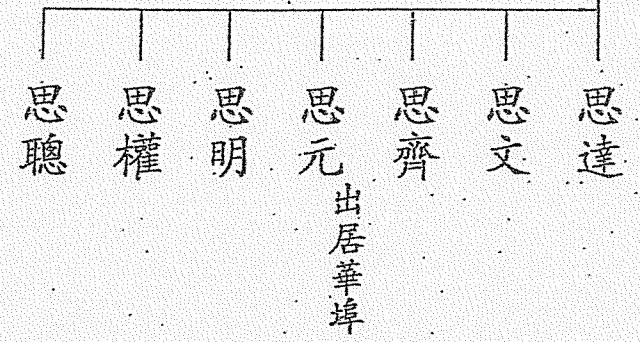 思達
思文
思齊
思元
出居華埠
思明
思權
思聰